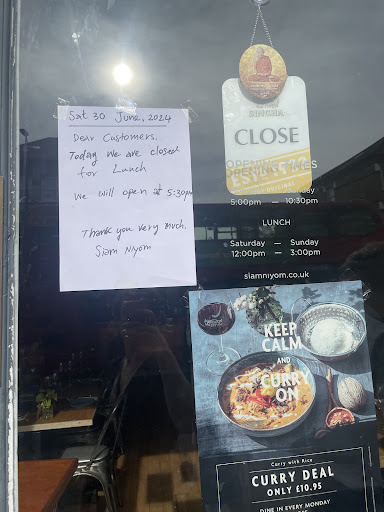 Sat 30 June, 2024
Dear Customers,
Today we are closed
for Lunch
We will open at 5:30pm
Thank you very much,
Siam Niyom
SINGHA
CLOSE
OPENING TIMES
5:00pm — 10:30pm
LUNCH
Saturday — Sunday
12:00pm — 3:00pm
siamniyom.co.uk
KEEP
CALM
AND
CURRY
ON
Curry with Rice
CURRY DEAL
ONLY £10.95
DINE IN EVERY MONDAY